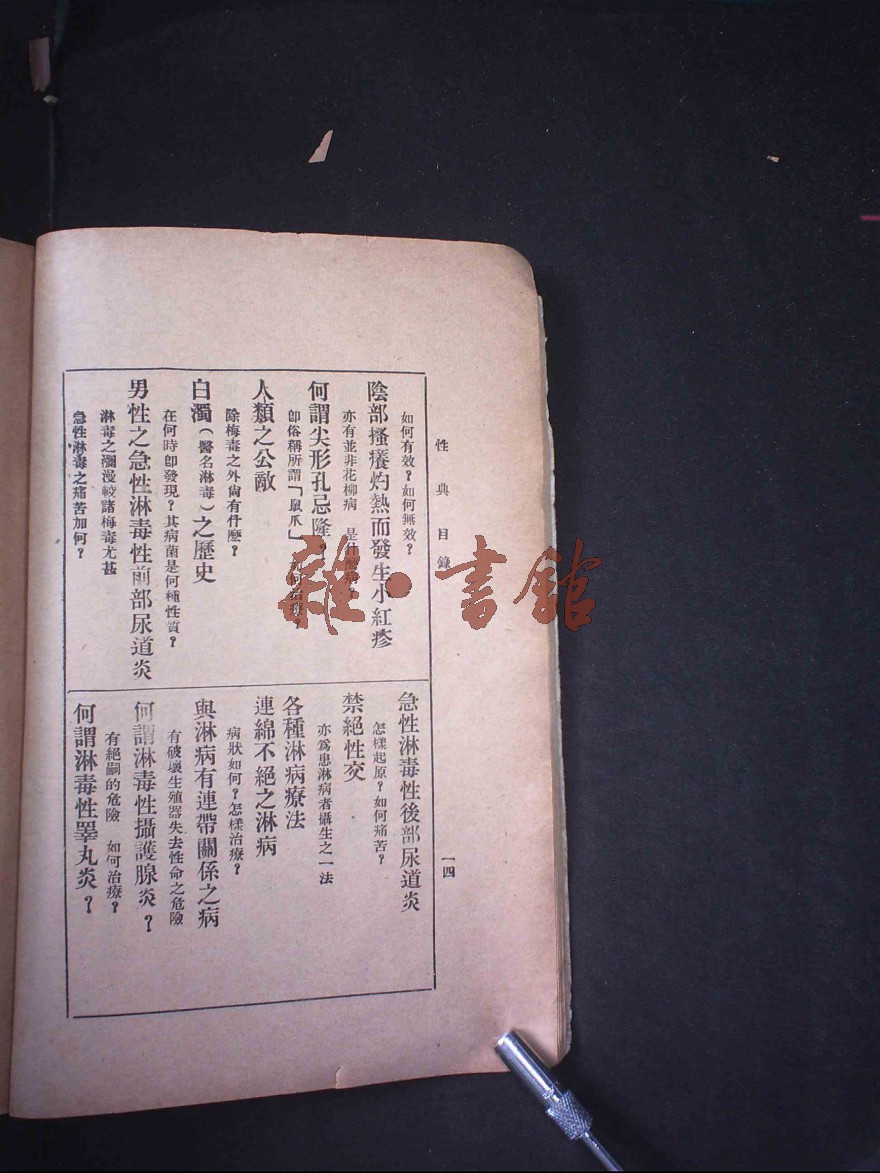 性典目錄
一四
如何有效？如何無效？
陰部搔癢灼熱而發生小紅疹
亦有並非花柳病　是什麼病？
何謂尖形孔忌隆
卽俗稱所謂「鼠爪」　如何治療？
人類之公敵
除梅毒之外尙有什麼？
白濁（醫名淋毒）之歷史
在何時卽發現？其病菌是何種性質？
男性之急性淋毒性前部尿道炎
淋毒之瀰漫較諸梅毒尤甚
急性淋毒之痛苦加何？
急性淋毒性後部尿道炎
怎樣起原？如何痛苦？
禁絕性交
亦爲患淋病者攝生之一法
各種淋病療法
連綿不絕之淋病
病狀如何？怎樣治療？
與淋病有連帶關係之病
有破壞生殖器失去性命之危險
何謂淋毒性攝護腺炎？
有絕嗣的危險　如何治療？
何謂淋毒性睪丸炎？
雜·書館